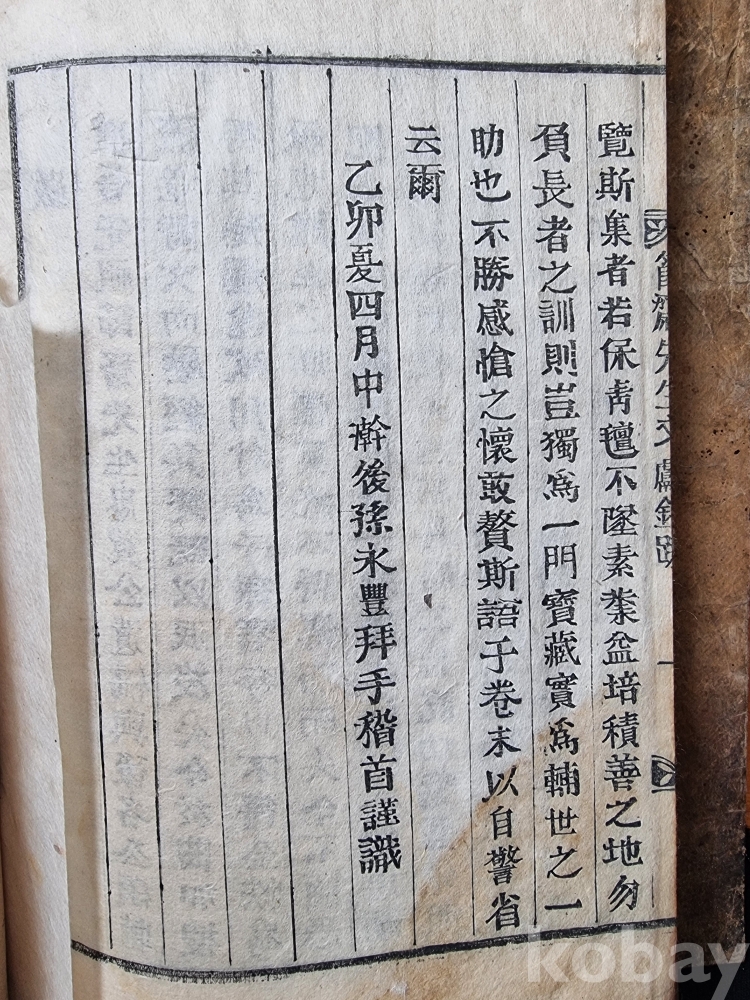 先生文獻錄跋 一
覽斯集者若保靑氊不墜素業益培積善之地勿
負長者之訓則豈獨爲一門寶藏實爲輔世之一
助也不勝感愴之懷敢贅斯語于卷末以自警省
云爾
乙卯夏四月中澣後孫永豐拜手稽首謹識
kobay